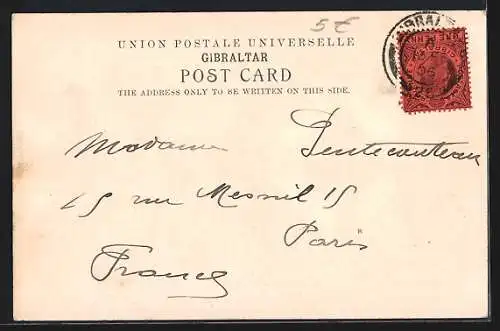 5 €
UNION POSTALE UNIVERSELLE
GIBRALTAR
POST CARD
THE ADDRESS ONLY TO BE WRITTEN ON THIS SIDE.
Madame
15 rue Mesnil 15
Paris
France